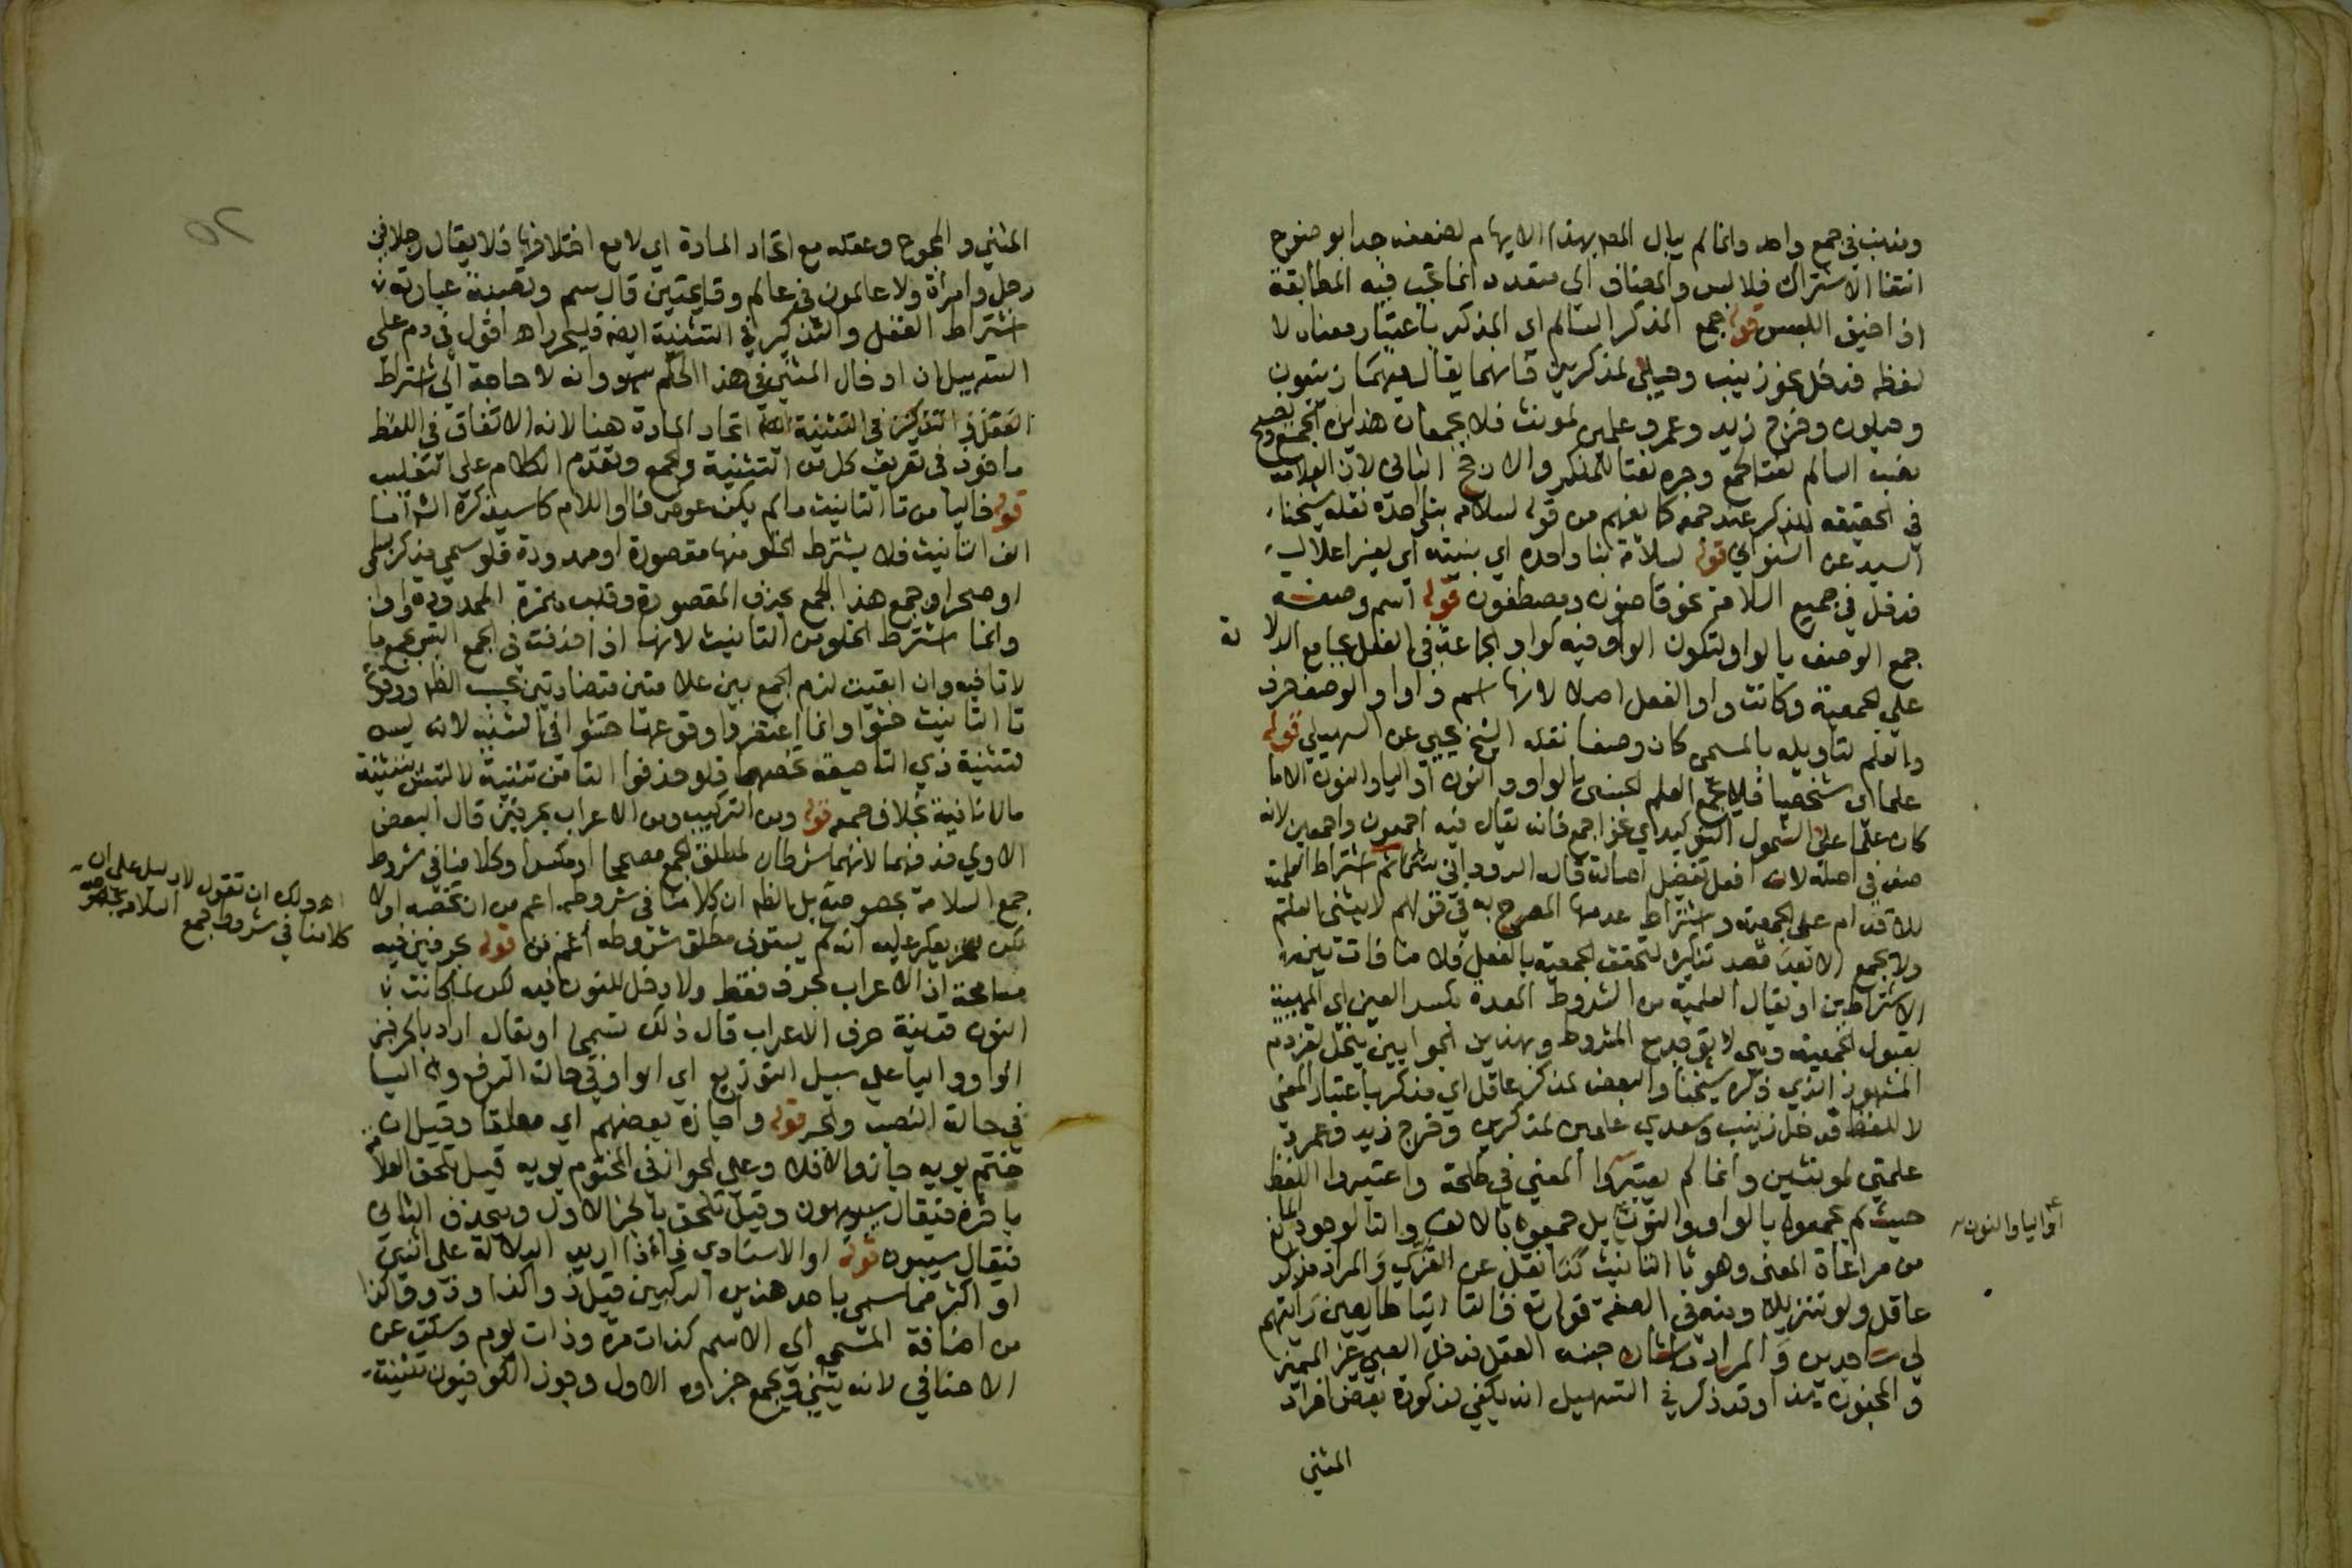 ومذنب في جمع واحد وانما لم يبال المص بهذا الايهام لضعفه جدا بوضوح
انتفا الاشتراك فلا لبس والمضاف الى متعدد انما تجب فيه المطابقة
اذا خيف اللبس قوله جمع المذكر السالم اي المذكر باعتبار معناه لا
لفظه فدخل نحو زينب وحبلى لمذكرين فانهما يقال فيهما زينبون
وحبلون وخرج زيد وعمرو علمين لمونث فلا يجمعان هذا الجمع ويصح
نصب السالم نعتا لجمع وجره نعتا للمذكر والارجح الثاني لان السلامة
في الحقيقه للمذكر عند جمعه كما يفهم من قوله لسلامة بنا واحده نقله شيخنا
السيد عن الشنواني قوله لسلامة بنا واحده اي بنيته اي لغير اعلال
فدخل في جمع السلامة نحو قاضون ومصطفون قوله اسم وصفة
جمع الوصف بالواو لتكون الواو فيه كواو الجماعة في الفعل بجامع الدلا لة
على الجمعية وكانت واو الفعل اصلا لانها اسم وواو الوصف حرف
والعلم لتاويله بالمسمى كان وصفا نقله الشيخ يحيى عن السهيلي قوله
علما اي شخصيا فلا يجمع العلم الجنسي بالواو والنون او اليا والنون الا ما
كان علما على الشمول التوكيدي نحو اجمع فانه يقال فيه اجمعون واجمعين لانه
صفة في اصله لانه افعل تفضيل اصالة قاله الدودابي ثم اشتراط العلمية
للاقدام على الجمعية واشتراط عدمها المصرح به في قولهم لا يثنى العلم
ولا يجمع الا بعد قصد تنكيره لتحقق الجمعية بالفعل فلا منافاة بين
الاشتراطين او يقال العلمية من الشروط المعدة بكسر العين اي المهيئة
لقبول الجمعية وهي لا توجد مع المشروط وبهذين الجوابين ينحل لغز دم
المشهور الذي ذكره شيخنا والبعض لمذكر عاقل اي مذكر باعتبار المعنى
لا للفظ فدخل زينب وسعدى علمين لمذكرين وخرج زيد وعمرو
علمي لمونثين وانما لم يعتبروا المعنى في طلحة واعتبروا اللفظ
حيث لم يجمعوه بالواو والنون بل جمعوه بالالف والتا لوجود المانع
او اليا والنون
من مراعاة المعنى وهو تا التانيث كذا نقل عن العزي والمراد مذكر
عاقل ولو تنزيلا ومنه في الصفة قوله تع قالتا اتينا طايعين رايتهم
لي ساجدين والمراد ما شان جنسه العقل فدخل الصبي غير المميز
والمجنون هذا وقد ذكر في التسهيل انه يكفي ذكورة بعض افراد
المثنى
المثنى والمجموع وعقله مع اتحاد المادة اي لا مع اختلافها فلا يقال رجلان في
رجل وامراة ولا عالمون في عالم وقايمتين قال سم وقضية عبارته
اشتراط العقل والتذكير في التثنية ايضا فليحرر اه اقول في دم على
التسهيل ان ادخال المثنى في هذا الحكم سهو وانه لا حاجة الى اشتراط
العقل والتذكير في التثنية اتحاد المادة هنا لانه الاتفاق في اللفظ
ماخوذ في تعريف كل من التثنية والجمع وتقدم الكلام على التغليب
قوله خاليا من تا التانيث ما لم يكن عوض فا او لام كما سيذكره الش اما
الف التانيث فلا يشترط الخلو منها مقصورة او ممدودة فلو سمي مذكر بسلمى
او صحرا وجمع هذا الجمع بحذف المقصورة وقلب همزة الممدودة واوا
وانما اشترط الخلو من التا التانيث لانها اذا حذفت في الجمع التبس بجمع ما
لا تا فيه وان ابقيت لزم الجمع بين علامتين متضادتين بحسب الظ ووقوع
تا التانيث حشوا وانما اغتفروا وقوعها حشوا في التثنيه لانه ليس
لتثنية ذي التا صيغة تخصها فلو حذفوا التا من تثنية لالتبس بتثنية
ما لا تا فيه بخلاف جمعه قوله ومن التركيب ومن الاعراب بحرفين قال البعض
الاولى حذفهما لانهما شرطان لمطلق الجمع مصححا او مكسرا وكلامنا في شروط
جمع السلامة بخصوصه بل بالظ ان كلامنا في شروطه اعم من ان تخصه او لا
اه ولك ان تقول لا دليل على ان
كلامنا في شروط جمع السلامة بخصوصه
نعم يعكر عليه انه لم يستوف مطلق شروطه قوله بحرفين فيه
مسامحة اذ الاعراب بحرف فقط ولا دخل للنون فيه لكن لما كانت
النون قرينة حرف الاعراب قال ذلك تسمحا او يقال اراد بالحرفين
الواو واليا على سبيل التوزيع اي الواو في حالة الرفع واليا
في حالة النصب والجر قوله واجازه بعضهم اي مطلقا وقيل ان
ختم بويه جاز والا فلا وعلى الجواز في المختوم بويه قيل تلحق العلامة
باخره فيقال سيبويهون وقيل تلحق بالجز الاول ويحذف الثاني
فيقال سيبون قوله او الاسنادي فاذا اريد الدلالة على اثنين
او اكثر مما سمي باحد هذين المركبين قيل ذوا كذا وذوو كذا
من اضافة المسمى الى الاسم كذات مرة وذات يوم وسكت عن
الاضافي لانه يثنى ويجمع جزاوه الاول وجوز الكوفيون تثنية